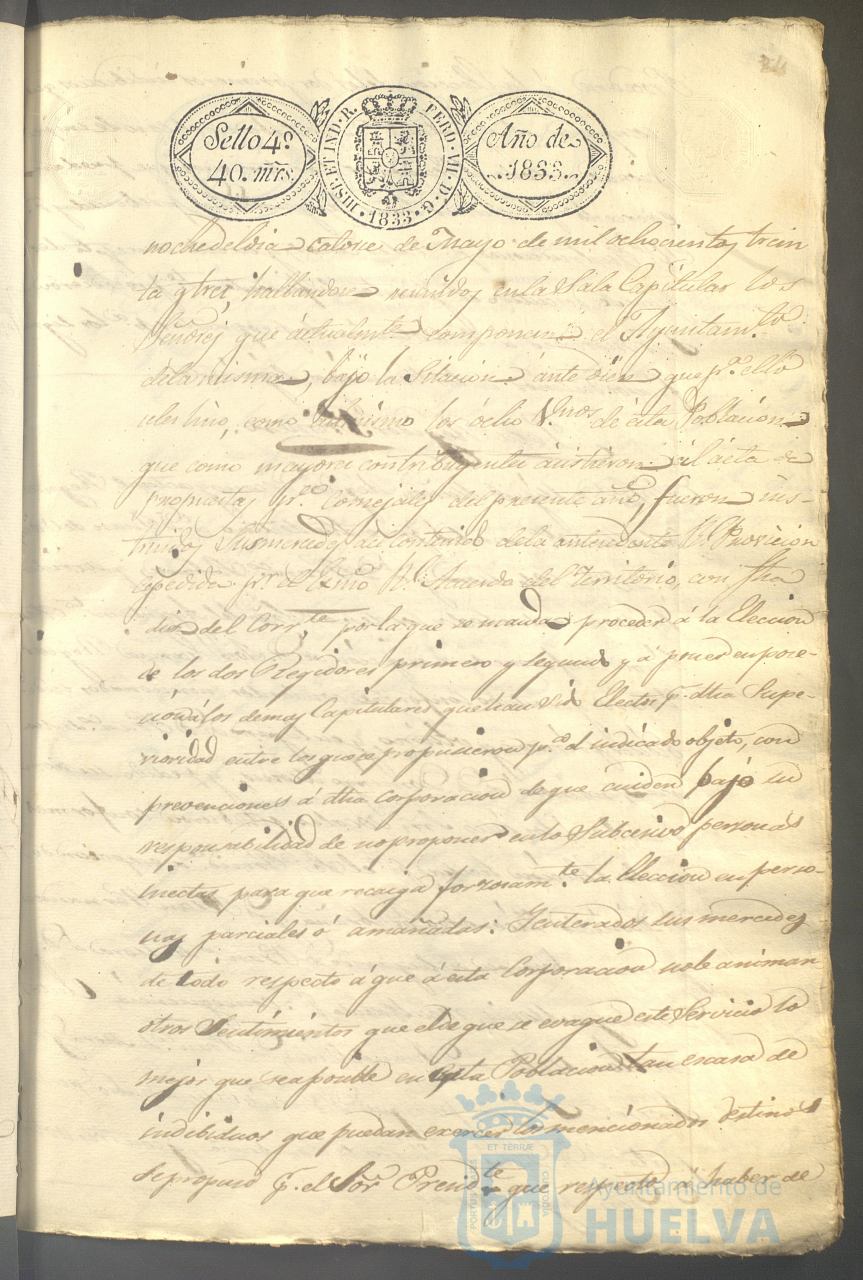 24
Sello 4º
40. mrs.
HISP. ET IND. R. FERD. VII. D. G.
1833
Año de
1833.
noche del dia catorce de Mayo de mil ochocientos trein
ta y tres, hallandose reunidos en la Sala Capitular los
Señores que actualmte. componen el Ayuntamto.
de la misma, bajo la Sitacion ante diem que pa. ello
se les hiso, como asimismo los ocho Vnos. de esta Poblacion
que como mayores contribuyentes asistieron al acta de
propuestas pa. Consejales del presente año, fueron ins-
truidos Susmercedes del contenido de la antendente Rl. Provicion
espedida pr. el Exmo Rl. Acuerdo del Territorio, con fha
dies del Corrte. por la que se manda proceder á la Eleccion
de los dos Regidores primero y segundo y á poner en pose-
sion á los demas Capitulares que han sido Electos pr. dha Supe-
rioridad entre los que se propusieron pa. el indicado objeto, con
prevenciones á dha corporacion de que cuiden bajo su
responsabilidad de no proponer en lo Subcesivo personas
inectas para que recaiga forzosamte. la Eleccion en perso-
nas parciales ó amañadas: Y enterados sus mercedes
de todo respecto á que á esta Corporacion no le animan
otros Sentimientos que el de que se evague este Servicio lo
mejor que sea posible en esta Poblacion tan escasa de
indibiduos que puedan exercer los mencionados destinos
Se propuso pr. el Sor. Presidte. que respecto á haber de
PORTUS MARIS ET TERRAE CUSTODIA
Ayuntamiento de
HUELVA